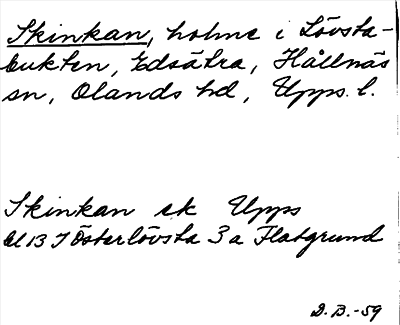 Skinkan, holme i Lövsta-
bukten, Edsätra, Hållnäs
sn, Olands hd, Upps. l.
Skinkan ek Upps
bl 13 I Österlövsta 3 a Flatgrund
D.B.-59